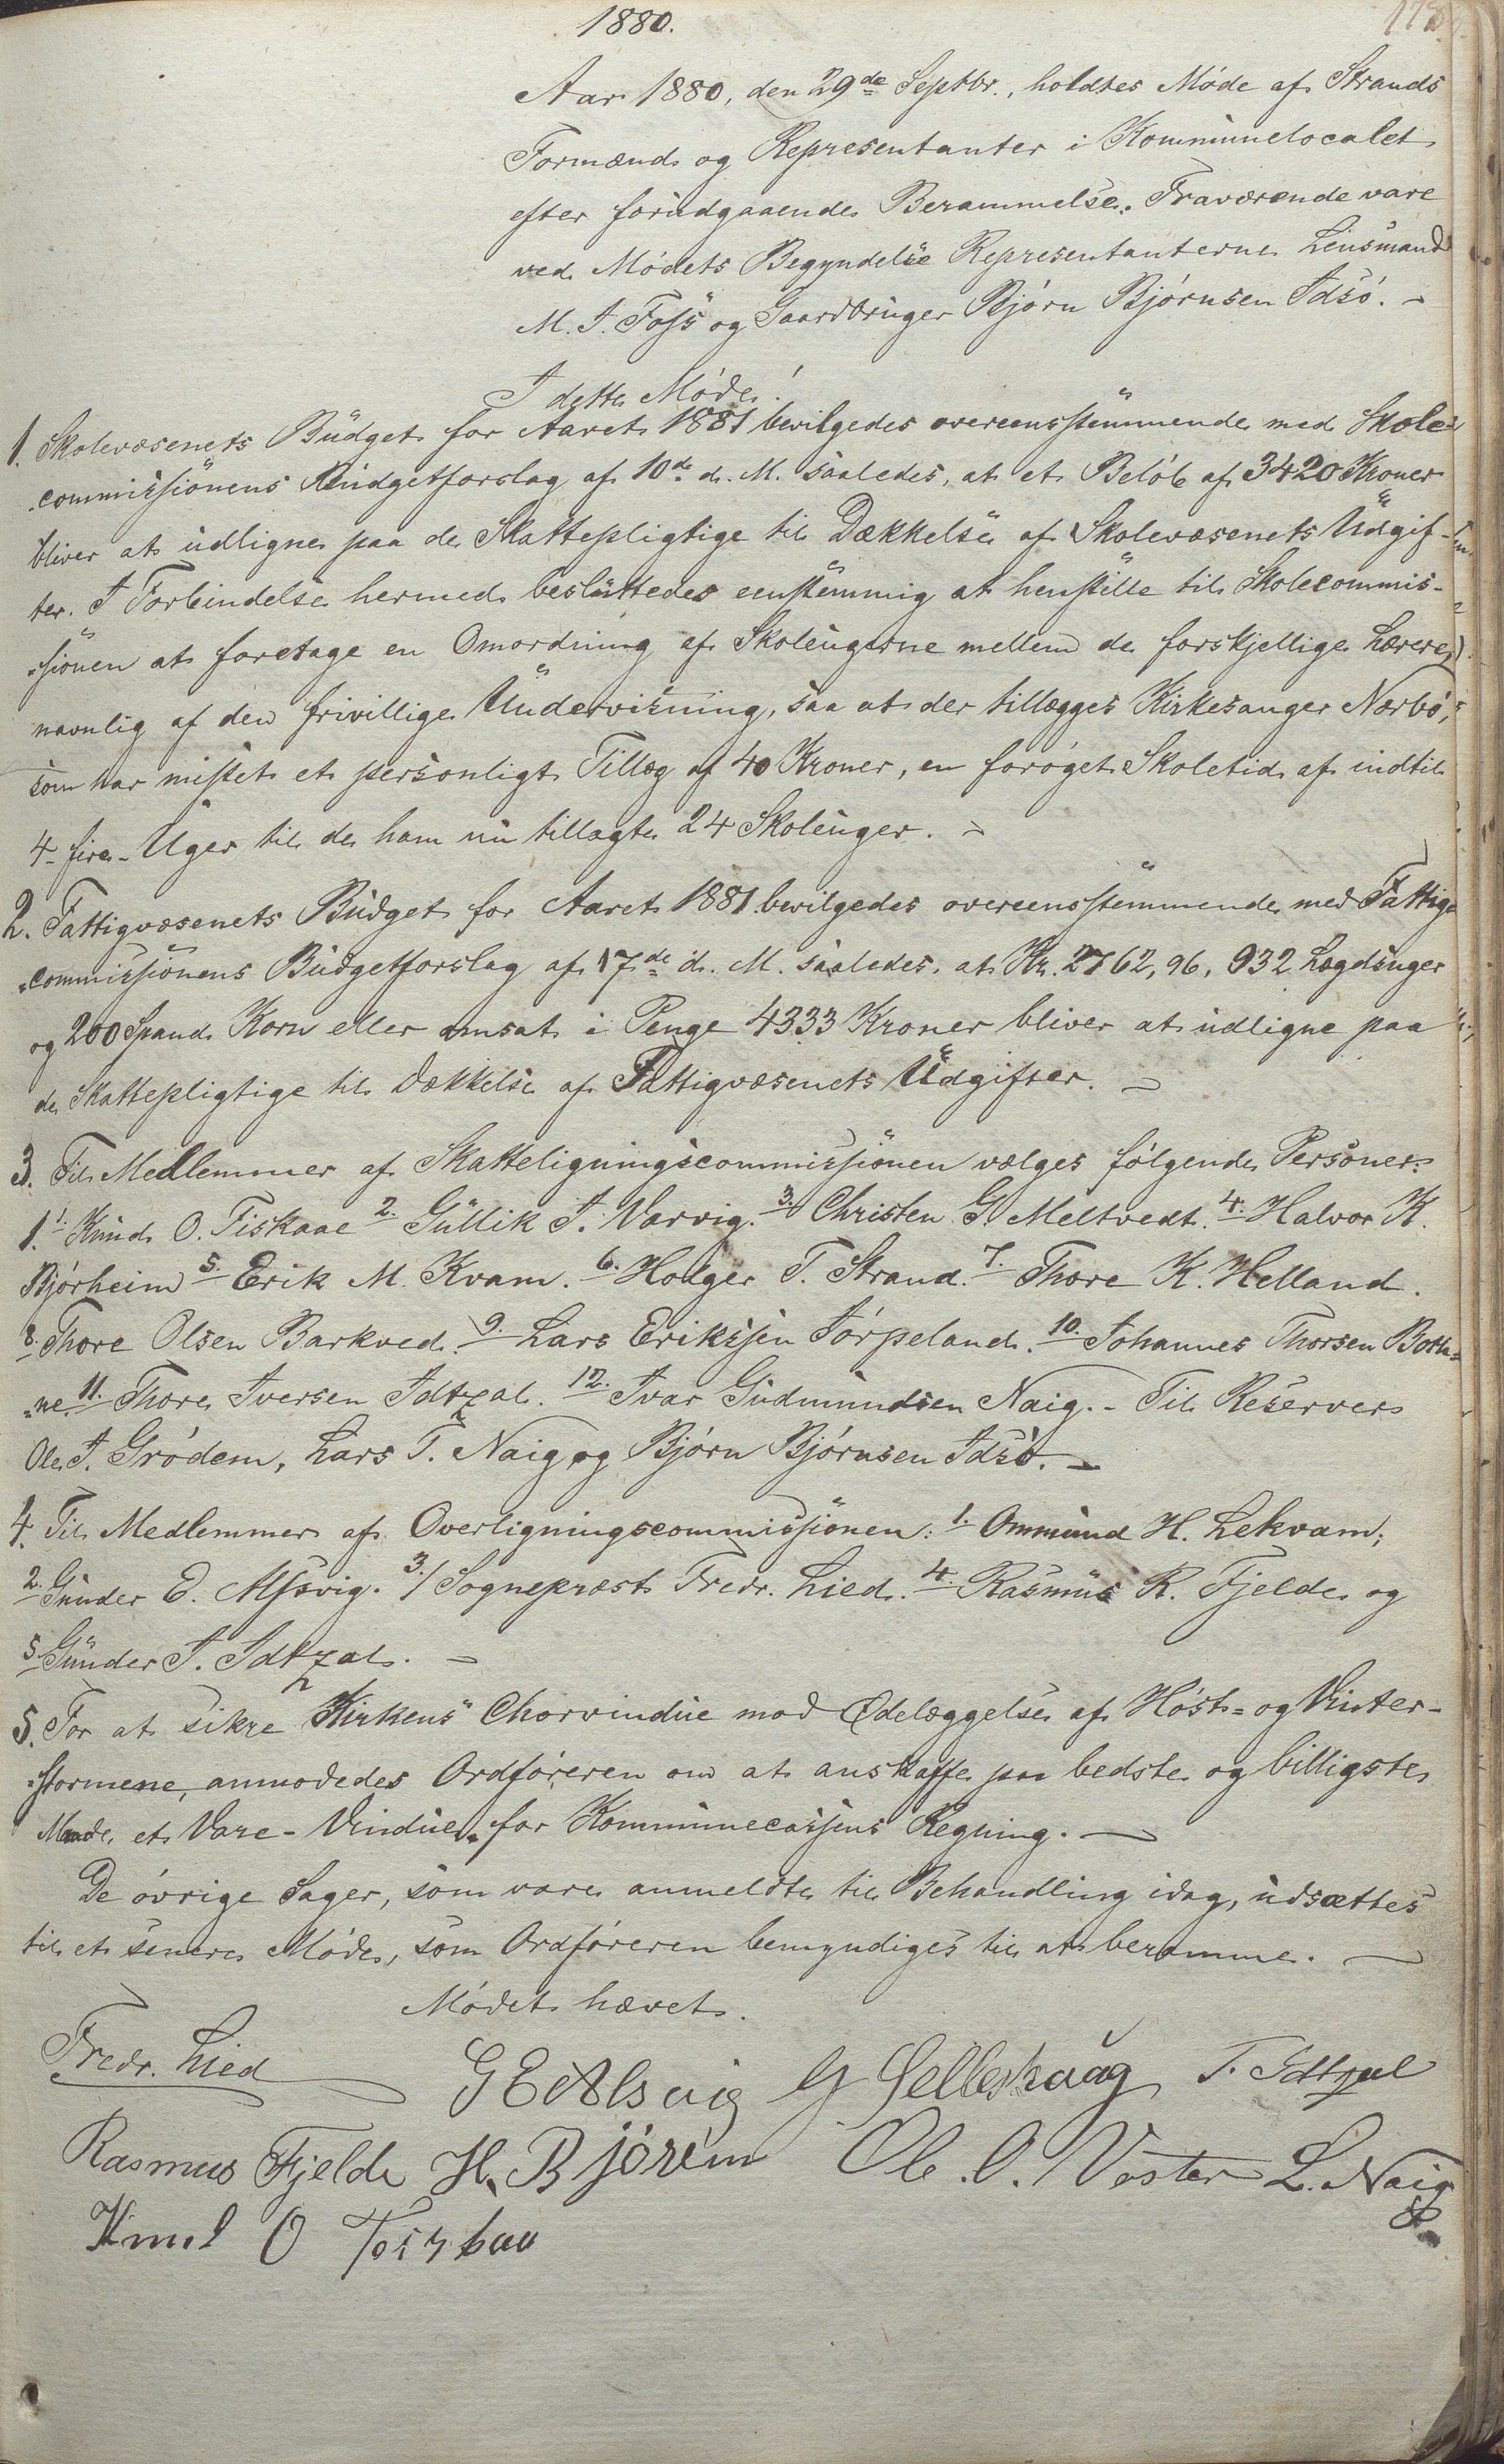 1880.
Aar 1880, den 29de Septbr., holdtes Møde af Strands
Formænd og Representanter i Kommunelocalet
efter forudgaaende Berammelse. Fraværende vare
ved Mødets Begyndelse Representanterne Lensmand
M. T. Foss og Gaardbruger Bjørn Bjørnsen Idsø. -
I dette Møde!
1. Skolevæsenets Budget for Aaret 1881 bevilgedes overeensstemmende med Skole=
=commissionens Budgetforslag af 10de d. M. saaledes, at et Beløb af 3420 Kroner
bliver at udligne paa de Skattepligtige til Dækkelse af Skolevæsenets Udgif-
ter. I Forbindelse hermed besluttedes eenstemmig at henstille til Skolecommis-
=sionen at foretage en Omordning af Skoleugerne mellem de forskjellige Lærere,
navnlig af den frivillige Undervisning, saa at der tillægges Kirkesanger Nærbø,
som har mistet et personligt Tillæg af 40 Kroner, en forøget Skoletid af indtil
4 - fire - Uger til de ham nu tillagte 24 Skoleuger. -
2. Fattigvæsenets Budget for Aaret 1881 bevilgedes overeensstemmende med Fattig=
=commissionens Budgetforslag af 17de d. M. saaledes, at Kr. 2762,96, 932 Lægdsuger
og 200 Spand Korn eller omsat i Penge 4333 Kroner bliver at udligne paa
de Skattepligtige til Dækkelse af Fattigvæsenets Udgifter. -
3. Til Medlemmer af Skatteligningscommissionen vælges følgende Personer:
1. 1. Knud O. Fiskaae 2. Gullik A. Varvig. 3. Christen G. Meltvedt. 4. Halvor K.
Bjørheim 5. Erik M. Kvam. 6. Holger T. Strand. 7. Thore K. Helland.
8. Thore Olsen Barkved. 9. Lars Erikssen Jørpeland. 10. Johannes Thorsen Both=
=ne. 11. Thore Iversen Idtzal. 12. Ivar Gudmundsen Naig. - Til Reserver
Ole A. Grødem, Lars T. Naig og Bjørn Bjørnsen Idsø. -
4. Til Medlemmer af Overligningscommissionen: 1. Ommund H. Lekvam;
2. Gunder E. Alsvig. 3/ Sognepræst Fredr. Lied. 4. Rasmus R. Fjelde og
5. Gunder I. Idtzal. -
5. For at sikre Kirkens Chorvindue mod Ødelæggelse af Høst= og Vinter-
=stormene, anmodedes Ordføreren om at anskaffe paa bedste og billigste
Maade et Vare-Vindue for Kommunecassens Regning. -
De øvrige Sager, som vare anmeldte til Behandling idag, udsættes
til et senere Møde, som Ordføreren bemyndiges til at beramme. -
Mødet hævet.
Fredr. Lied G E Alsvig G Selleskaag T. Idtzal
Rasmus Fjelde H. Bjøreim Ole O. Voster L. Naig
Knud O